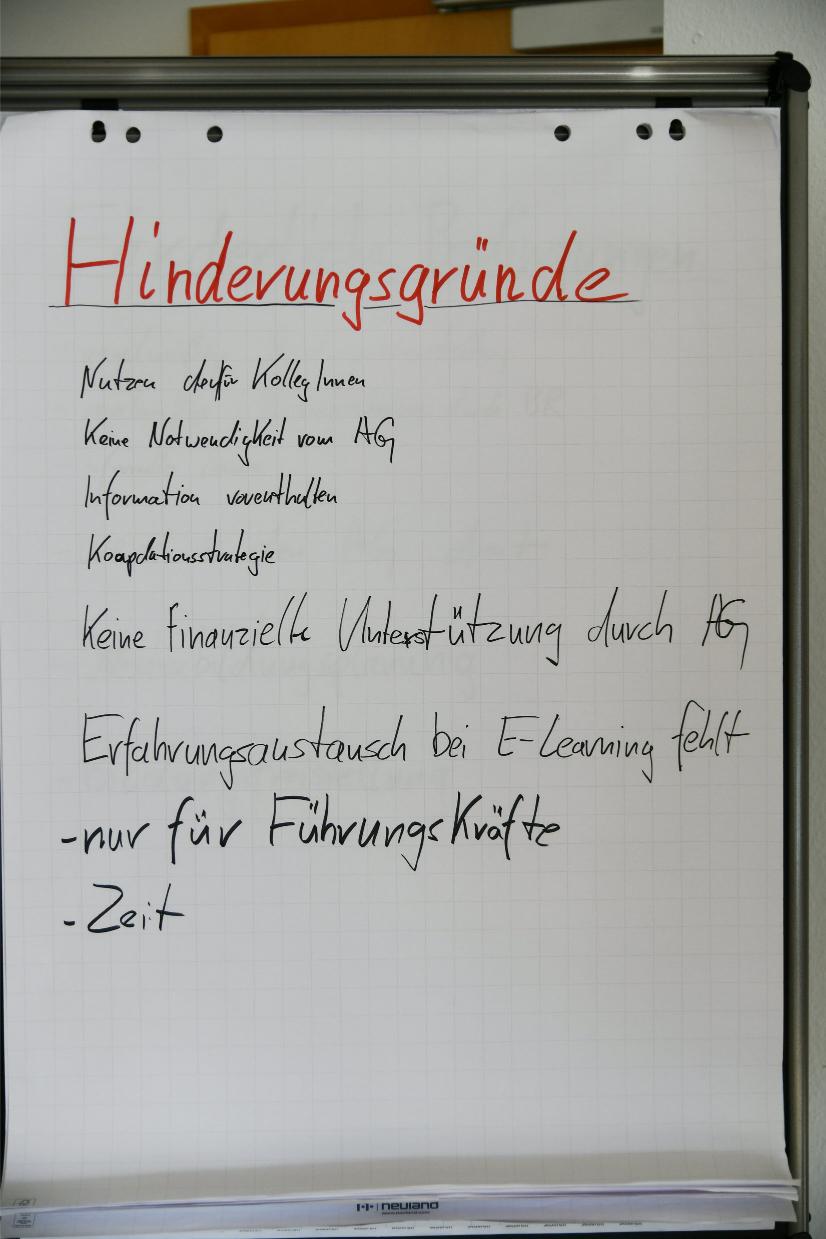 Hinderungsgründe
Nutzen für KollegInnen
Keine Notwendigkeit vom AG
Information vorenthalten
Keine finanzielle Unterstützung durch AG
Erfahrungsaustausch bei E-Learning fehlt
-nur für Führungskräfte
-Zeit
neuland